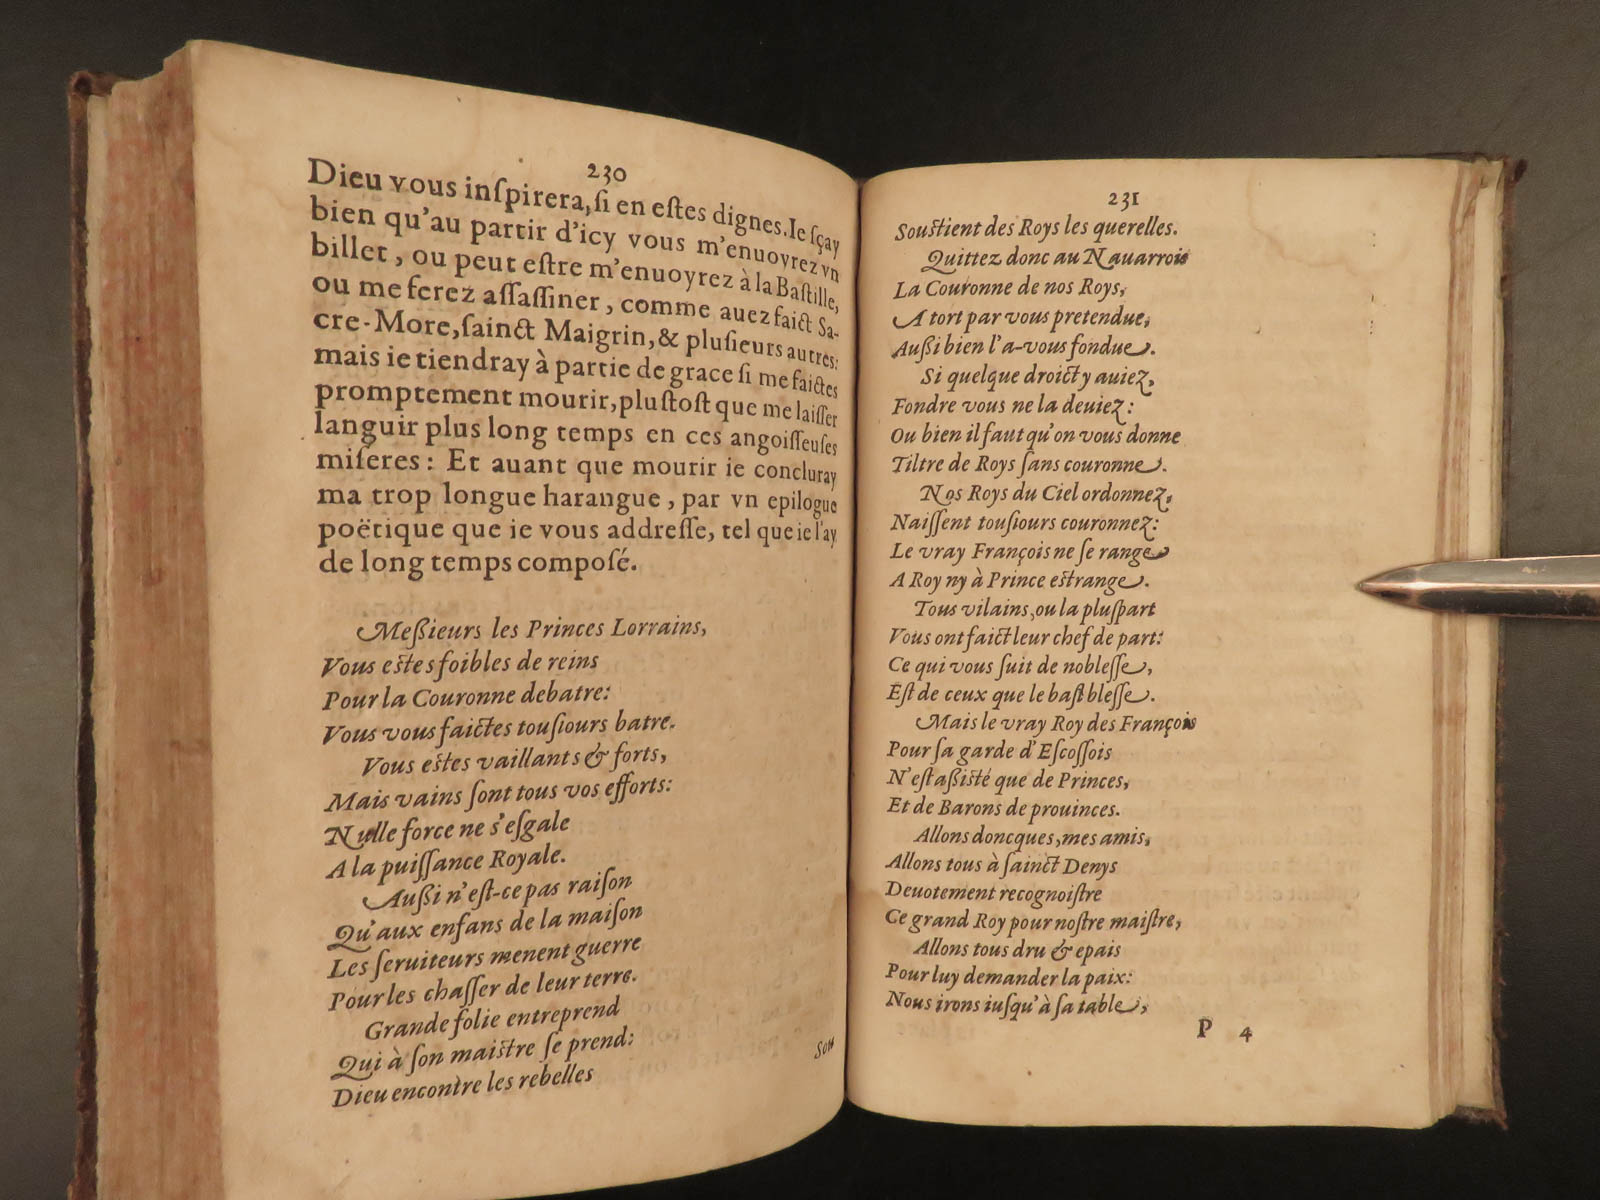 230
Dieu vous inſpirera, ſi en eſtes dignes. Ie ſçay
bien qu'au partir d'icy vous m'enuoyrez vn
billet, ou peut eſtre m'enuoyrez à la Baſtille,
ou me ferez aſſaſſiner, comme auez faict Sa-
cre-More, ſainct Maigrin, & pluſieurs autres:
mais ie tiendray à partie de grace ſi me faictes
promptement mourir, pluſtoſt que me laiſſer
languir plus long temps en ces angoiſſeuſes
miſeres: Et auant que mourir ie concluray
ma trop longue harangue, par vn epilogue
poëtique que ie vous addreſſe, tel que ie l'ay
de long temps compoſé.
Meßieurs les Princes Lorrains,
Vous eſtes foibles de reins
Pour la Couronne debatre:
Vous vous faictes touſiours batre.
Vous eſtes vaillants & forts,
Mais vains ſont tous vos efforts:
Nulle force ne s'eſgale
A la puiſſance Royale.
Außi n'eſt-ce pas raiſon
Qu'aux enfans de la maiſon
Les ſeruiteurs menent guerre
Pour les chaſſer de leur terre.
Grande folie entreprend
Qui à ſon maiſtre ſe prend:
Dieu encontre les rebelles
Sou
231
Souſtient des Roys les querelles.
Quittez donc au Nauarrois
La Couronne de nos Roys,
A tort par vous pretendue,
Außi bien l'a-vous fondue.
Si quelque droict y auiez,
Fondre vous ne la deuiez:
Ou bien il faut qu'on vous donne
Tiltre de Roys ſans couronne.
Nos Roys du Ciel ordonnez,
Naiſſent touſiours couronnez:
Le vray François ne ſe range
A Roy ny à Prince eſtrange.
Tous vilains, ou la pluſpart
Vous ont faict leur chef de part:
Ce qui vous ſuit de nobleſſe,
Eſt de ceux que le baſt bleſſe.
Mais le vray Roy des François
Pour ſa garde d'Eſcoſſois
N'eſt aßiſté que de Princes,
Et de Barons de prouinces.
Allons doncques, mes amis,
Allons tous à ſainct Denys
Deuotement recognoiſtre
Ce grand Roy pour noſtre maiſtre,
Allons tous dru & epais
Pour luy demander la paix:
Nous irons iuſqu'à ſa table,
P 4